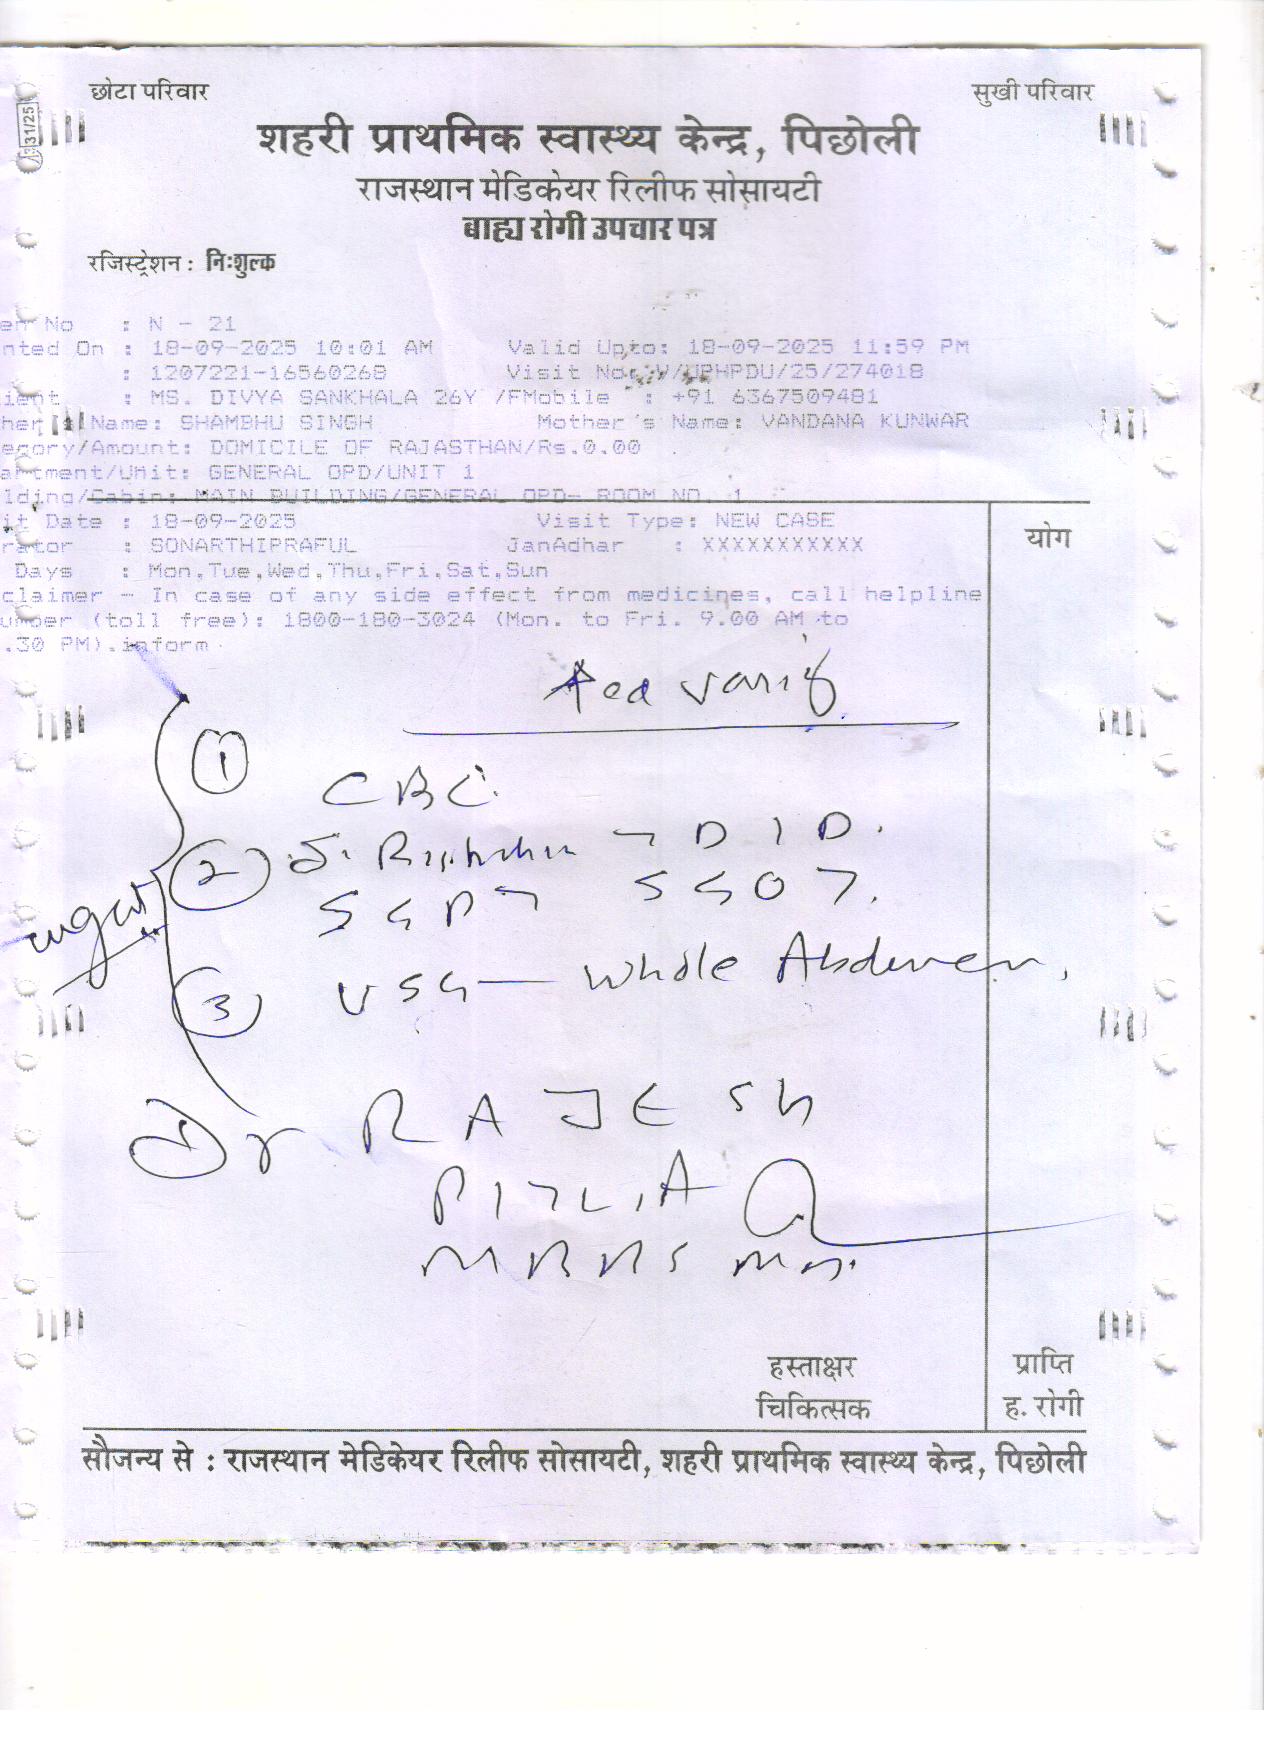 छोटा परिवार सुखी परिवार
331/25
शहरी प्राथमिक स्वास्थ्य केन्द्र, पिछोली
राजस्थान मेडिकेयर रिलीफ सोसायटी
बाह्य रोगी उपचार पत्र
रजिस्ट्रेशन : निःशुल्क
en No : N - 21
nted On : 18-09-2025 10:01 AM Valid Upto: 18-09-2025 11:59 PM
: 1207221-16560268 Visit No: V/UPHPDU/25/274018
ient : MS. DIVYA SANKHALA 26Y /F Mobile : +91 6367509481
her's Name: SHAMBHU SINGH Mother's Name: VANDANA KUNWAR
egory/Amount: DOMICILE OF RAJASTHAN/Rs.0.00
artment/Unit: GENERAL OPD/UNIT 1
lding/Cabin: MAIN BUILDING/GENERAL OPD- ROOM NO. 1
it Date : 18-09-2025 Visit Type: NEW CASE
rator : SONARTHIPRAFUL JanAdhar : XXXXXXXXXXX
Days : Mon,Tue,Wed,Thu,Fri,Sat,Sun
claimer - In case of any side effect from medicines, call helpline
umber (toll free): 1800-180-3024 (Mon. to Fri. 9.00 AM to
.30 PM).inform
योग
① CBC
② S. → D I D.
SGPT SGOT.
③ USG — Whole Abdomen,
Dr RAJESH
MBBS
हस्ताक्षर प्राप्ति
चिकित्सक ह. रोगी
सौजन्य से : राजस्थान मेडिकेयर रिलीफ सोसायटी, शहरी प्राथमिक स्वास्थ्य केन्द्र, पिछोली